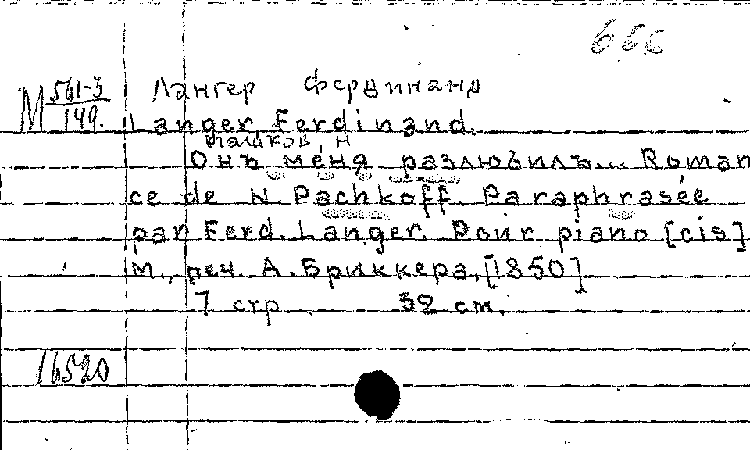 656
М 561-3/149. Лангер Фердинанд
Langer Ferdinand.
Пашков, Н
Онъ меня разлюбилъ... Roman
ce de N Pachkoff. Paraphrasée
par Ferd. Langer. Pour piano [cis]
М., реч. А. Бриккера, [1850]
7 стр 32 см.
16520